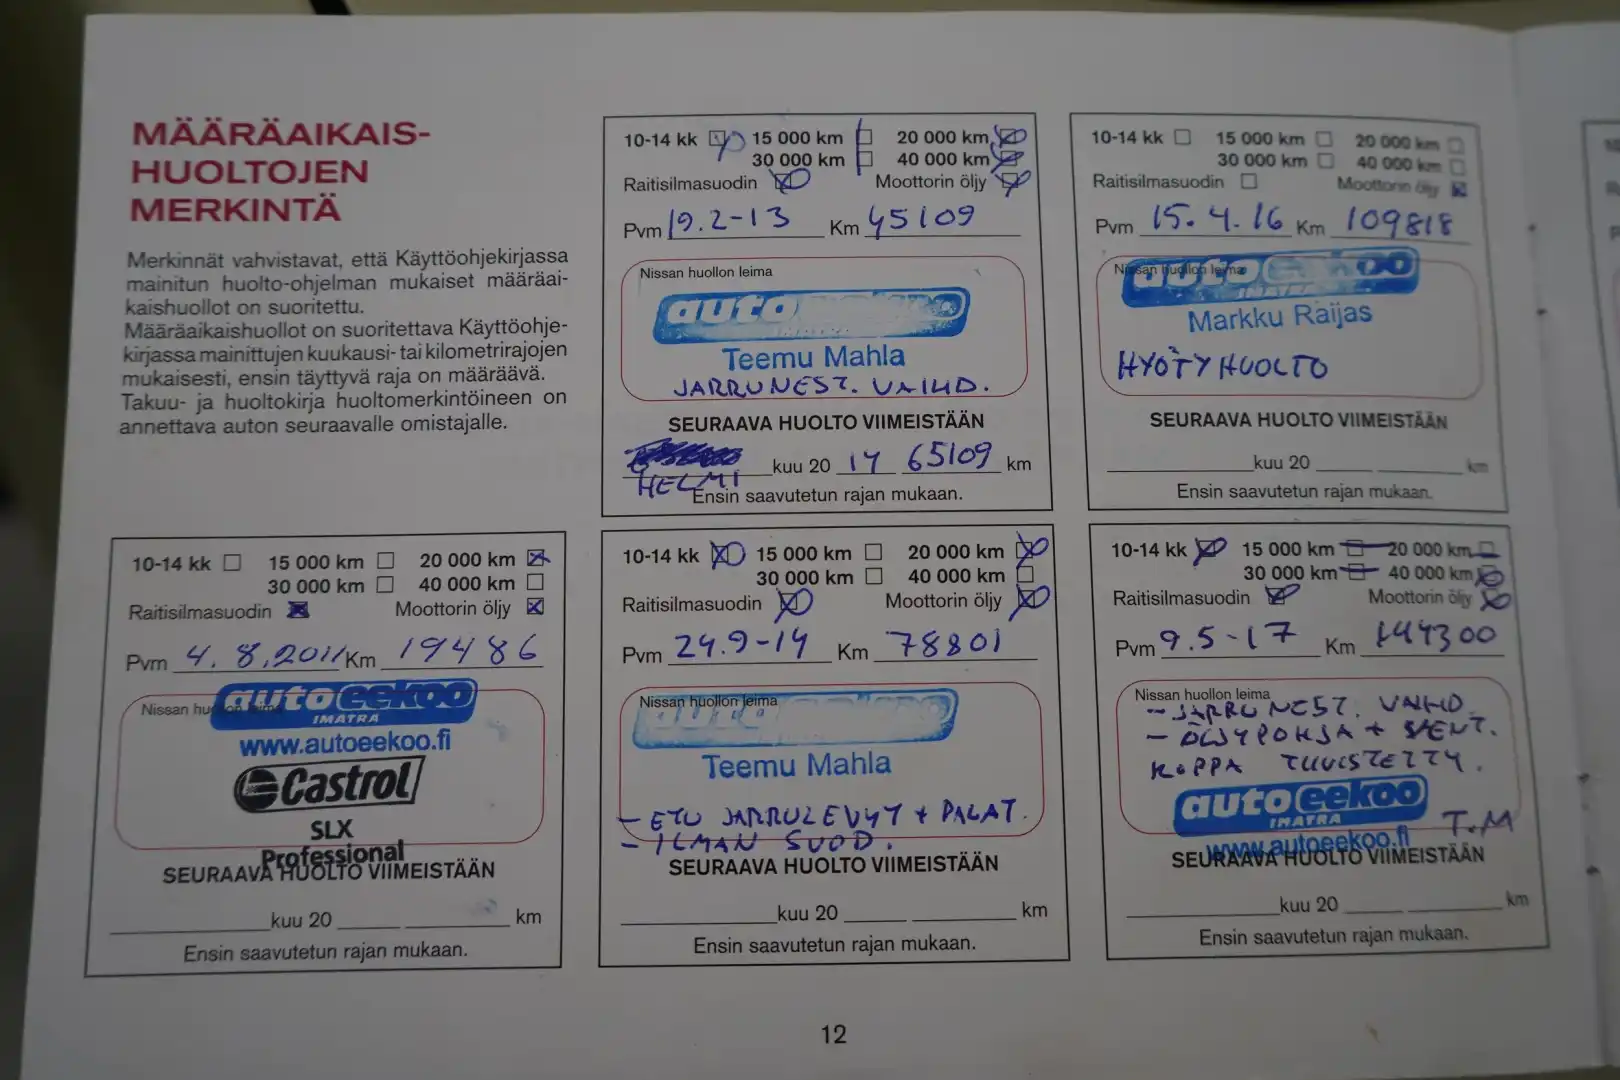 MÄÄRÄAIKAIS-
HUOLTOJEN
MERKINTÄ
Merkinnät vahvistavat, että Käyttöohjekirjassa
mainitun huolto-ohjelman mukaiset määräai-
kaishuollot on suoritettu.
Määräaikaishuollot on suoritettava Käyttöohje-
kirjassa mainittujen kuukausi- tai kilometrirajojen
mukaisesti, ensin täyttyvä raja on määräävä.
Takuu- ja huoltokirja huoltomerkintöineen on
annettava auton seuraavalle omistajalle.
10-14 kk 15 000 km 20 000 km
30 000 km 40 000 km
Raitisilmasuodin Moottorin öljy
Pvm 4.8.2011 Km 19486
Nissan huollon leima
autoeekoo
IMATRA
www.autoeekoo.fi
Castrol
SLX
Professional
SEURAAVA HUOLTO VIIMEISTÄÄN
kuu 20 km
Ensin saavutetun rajan mukaan.
10-14 kk 15 000 km 20 000 km
30 000 km 40 000 km
Raitisilmasuodin Moottorin öljy
Pvm 19.2-13 Km 45109
Nissan huollon leima
auto
IMATRA
Teemu Mahla
JARRUNEST. VAIHD.
SEURAAVA HUOLTO VIIMEISTÄÄN
HELMI kuu 20 14 65109 km
Ensin saavutetun rajan mukaan.
10-14 kk 15 000 km 20 000 km
30 000 km 40 000 km
Raitisilmasuodin Moottorin öljy
Pvm 24.9-14 Km 78801
Nissan huollon leima
auto
Teemu Mahla
- ETU JARRULEVYT + PALAT.
- ILMAN SUOD.
SEURAAVA HUOLTO VIIMEISTÄÄN
kuu 20 km
Ensin saavutetun rajan mukaan.
10-14 kk 15 000 km 20 000 km
30 000 km 40 000 km
Raitisilmasuodin Moottorin öljy
Pvm 15.4.16 Km 109818
Nissan huollon leima
autoeekoo
IMATRA
Markku Raijas
HYÖTYHUOLTO
SEURAAVA HUOLTO VIIMEISTÄÄN
kuu 20 km
Ensin saavutetun rajan mukaan.
10-14 kk 15 000 km 20 000 km
30 000 km 40 000 km
Raitisilmasuodin Moottorin öljy
Pvm 9.5-17 Km 144300
Nissan huollon leima
- JARRUNEST. VAIHD.
- ÖLJYPOHJA + VENT.
KOPPA TIIVISTETTY.
autoeekoo
IMATRA
T.M
www.autoeekoo.fi
SEURAAVA HUOLTO VIIMEISTÄÄN
kuu 20 km
Ensin saavutetun rajan mukaan.
12